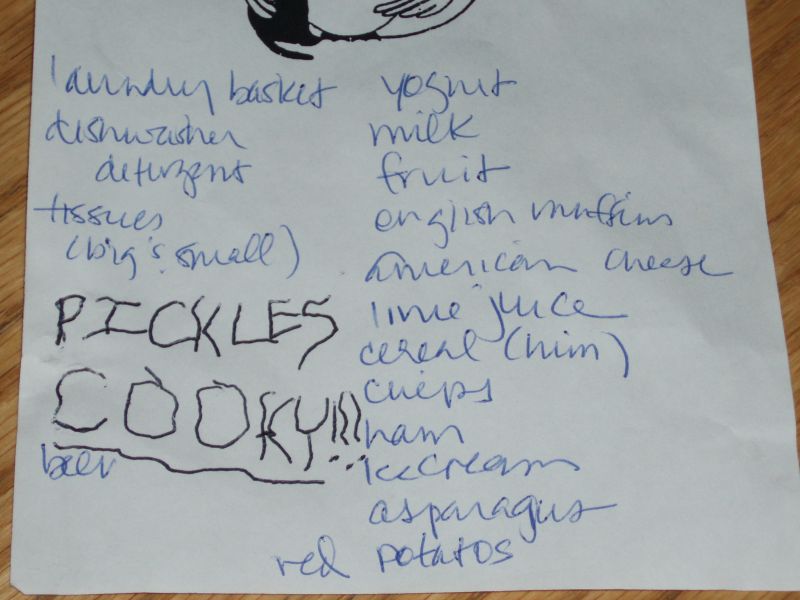 laundry basket
dishwasher
detergent
tissues
(big & small)
PICKLES
COOKY!!!
beer
yogurt
milk
fruit
english muffins
american cheese
lime juice
cereal (him)
chips
ham
ice cream
asparagus
red potatos